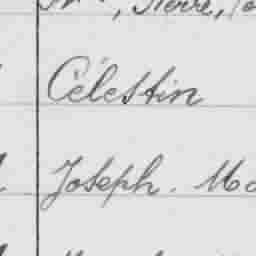 Pierre,
Célestin
Joseph. Mo